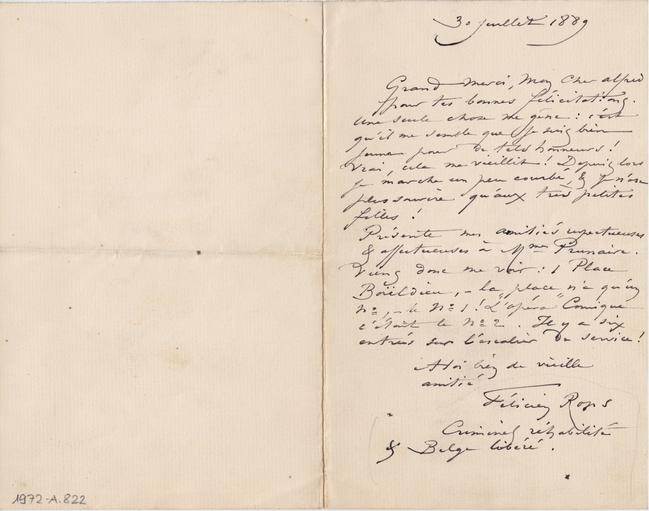 30 juillet 1889
Grand merci, Mon Cher alfred
pour tes bonnes félicitations.
Une seule chose me gêne : c'est
qu'il me semble que je suis bien
jeune pour de tels honneurs !
Vrai, cela me vieillit ! Depuis lors
je marche un peu courbé, & je n'ose
plus sourire qu'aux très petites
filles !
Présente mes amitiés respectueuses
& affectueuses à Mme Prunaire.
Viens donc me voir : 1 Place
Boïeldieu, – la place n'a qu'un
No, – le No 1 ! L'"opéra" Comique
c'était le No 2. Il y a six
entrées sur l'escalier de service !
A toi bien de vieille
amitié
Félicien Rops
Criminel réhabilité
& Belge libéré.
1972-A.822